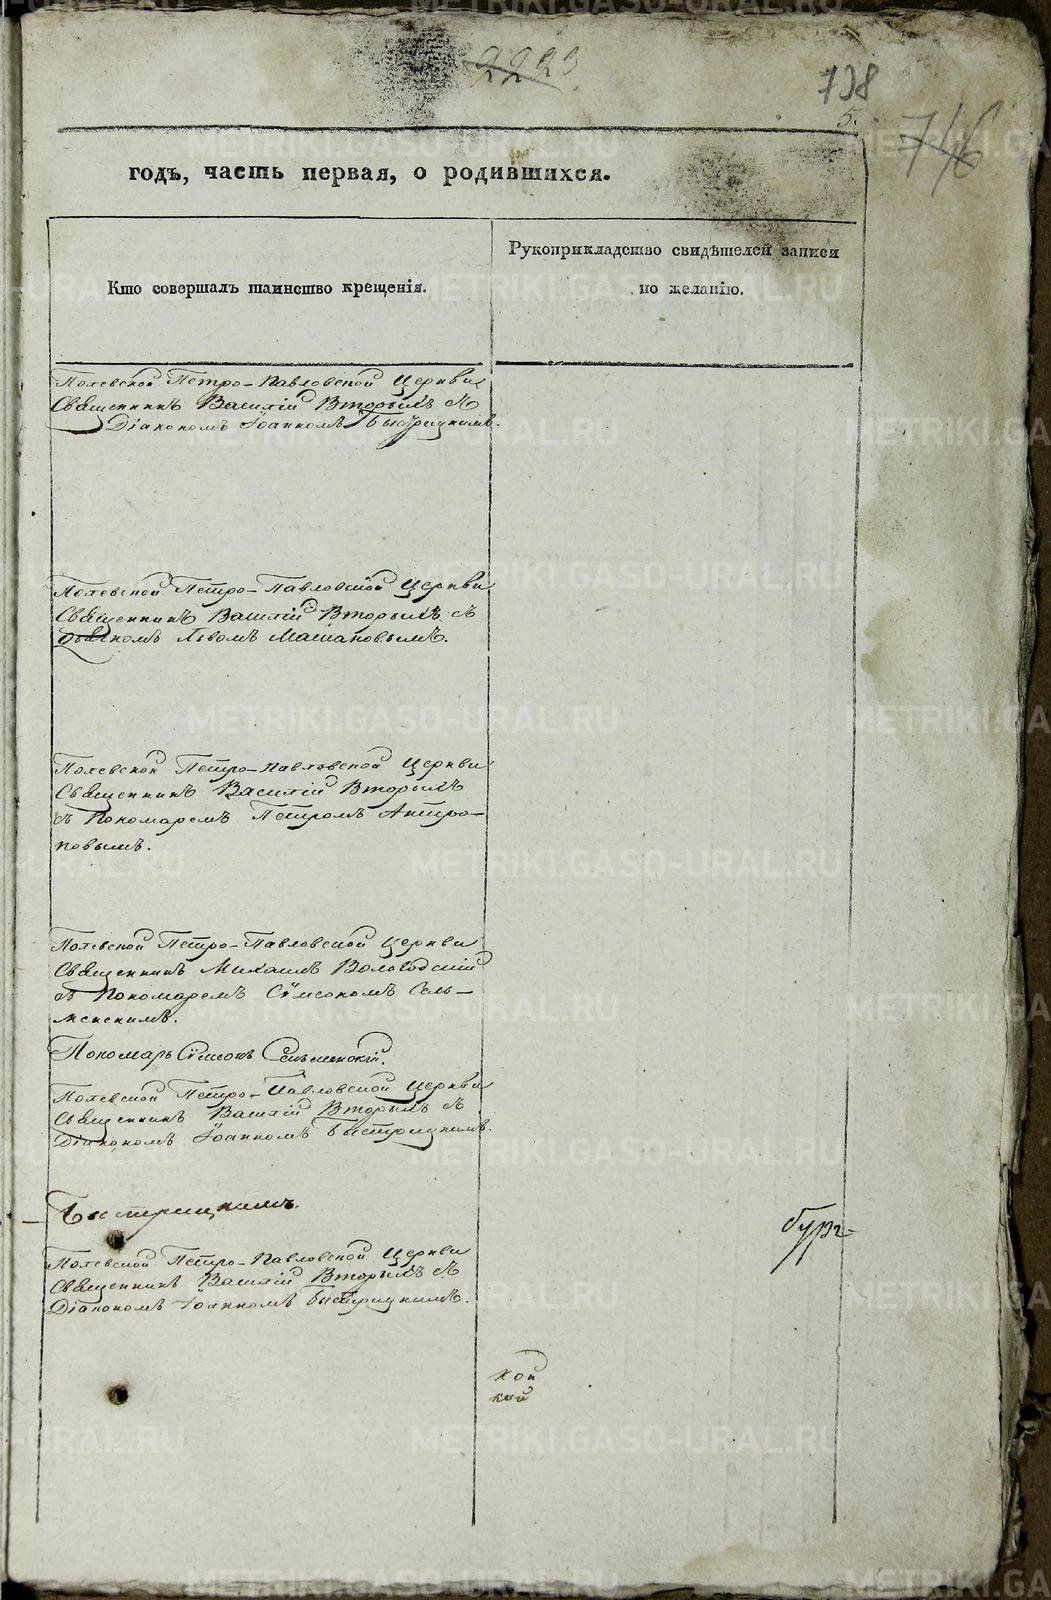 2223
738
5.
746
годъ, часть первая, о родившихся.
Кто совершалъ таинство крещенія.
Рукоприкладство свидѣтелей записи
по желанію.
Полевской Петро-Павловской Церкви
Священникъ Василій Вторыхъ съ
Діакономъ Іоанномъ Быстрицкимъ.
Полевской Петро-Павловской Церкви
Священникъ Василій Вторыхъ съ
Львомъ
Полевской Петро-Павловской Церкви
Священникъ Василій Вторыхъ
съ Пономаремъ Петромъ Антро-
повымъ.
Полевской Петро-Павловской Церкви
Священникъ Михаилъ
съ Пономаремъ Сѵмеономъ Сель-
менскимъ.
Пономарь Сѵмеонъ Сельменскій.
Полевской Петро-Павловской Церкви
Священникъ Василій Вторыхъ съ
Діакономъ Іоанномъ Быстрицкимъ.
Быстрицкимъ.
бург-
Полевской Петро-Павловской Церкви
Священникъ Василій Вторыхъ съ
Діакономъ Іоанномъ Быстрицкимъ.
кой
кой
METRIKI.GASO-URAL.RU